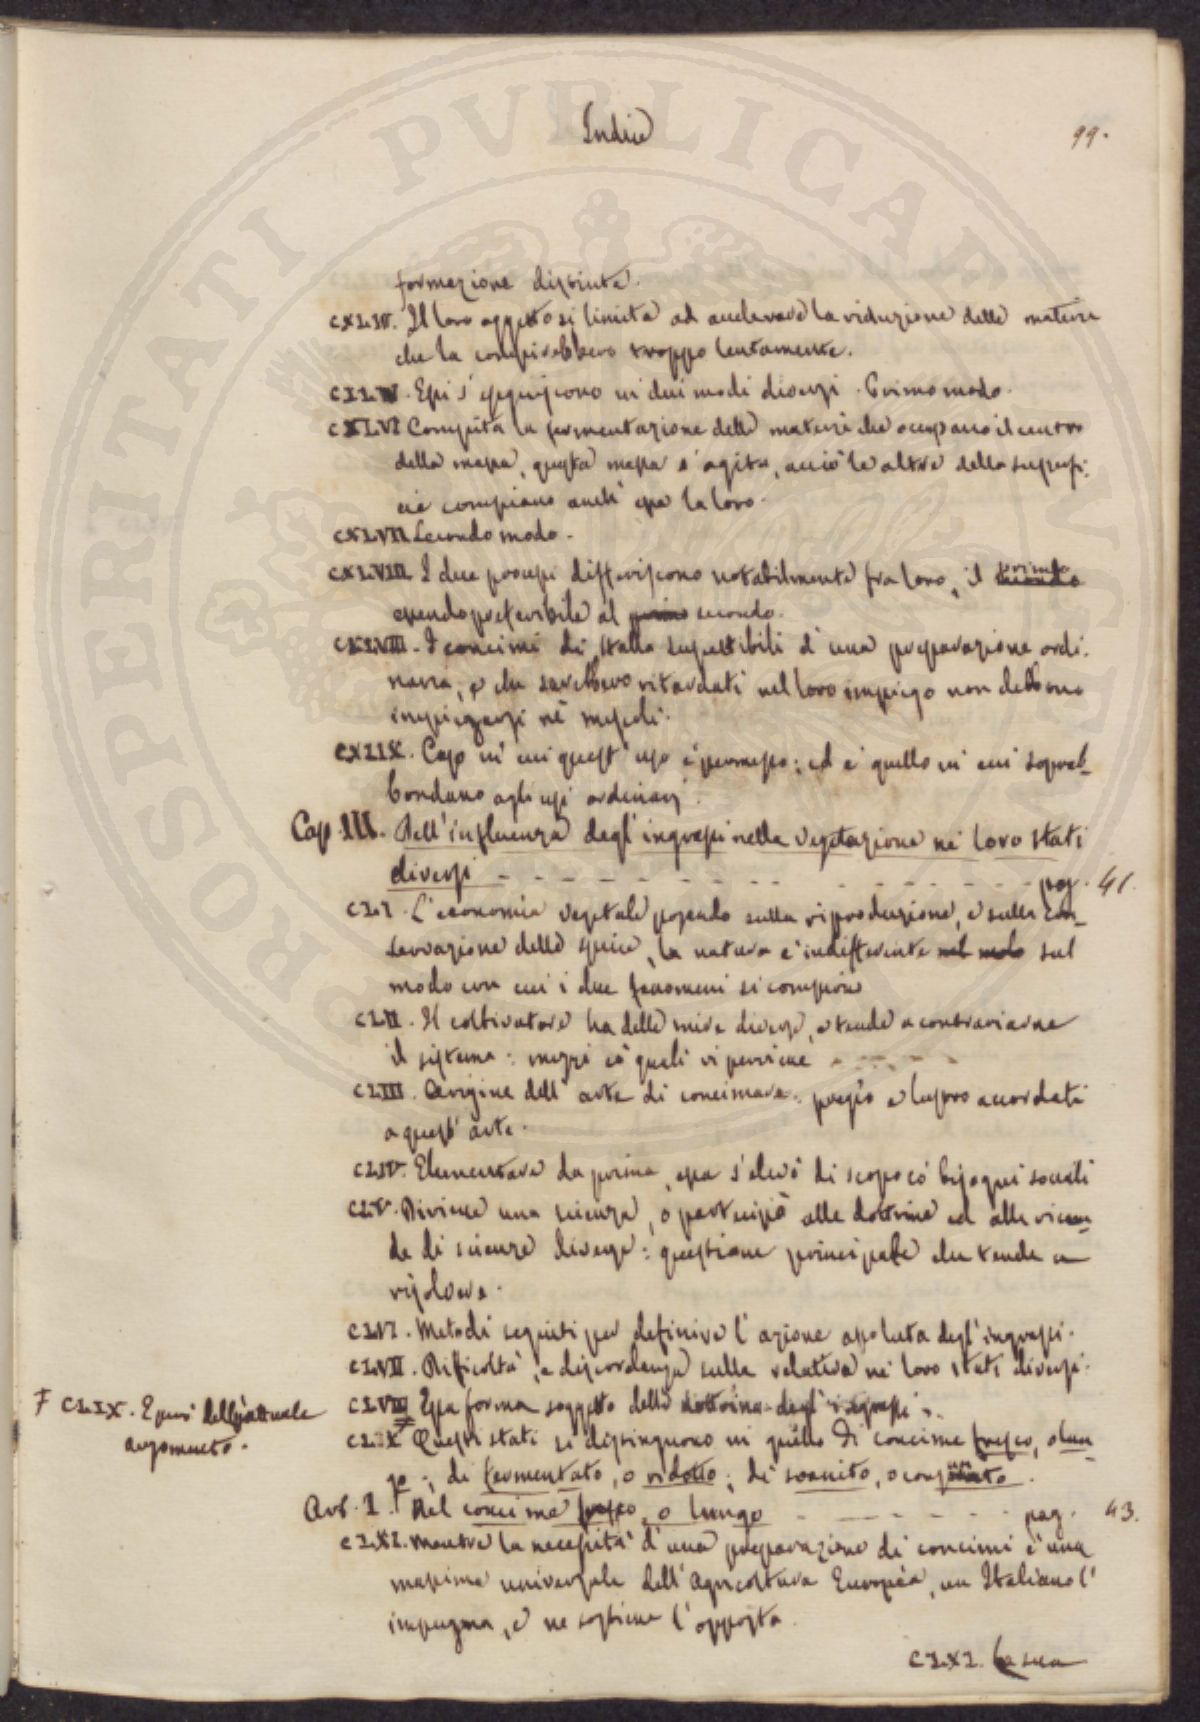 Indice
99.
formazione distinta.
CXLIV. Il loro oggetto si limita ad accelerare la riduzione delle materie
che la compirebbero troppo lentamente.
CXLV. Essi s'eseguiscono in due modi diversi. Primo modo.
CXLVI Compita la fermentazione delle materie che occupano il centro
della massa, questa massa s'agita, acciò le altre della superfi-
cie compiano anch'essa la loro.
CXLVII. Secondo modo.
CXLVIII. I due processi differiscono notabilmente fra loro, il secondo primo
essendo preferibile al primo secondo.
CXLVIII. I concimi di stalla suscettibili d'una preparazione ordi-
naria, e che sarebbero ritardati nel loro impiego non debbono
impiegarsi nè
CXLIX. Caso in cui quest'uso è permesso; ed è quello in cui soprab-
bondano agli usi ordinarj.
Cap. III. Dell'influenza degl'ingrassi nella vegetazione nè loro stati
diversi - - - - - - - - pag. 41.
CLI. L'economia vegetale posando sulla riproduzione, e sulla con-
servazione delle specie, la natura è indifferente nel modo sul
modo con cui i due fenomeni si compiono
CLII. Il coltivatore ha delle mire diverse, e tende a contrariarne
il sistema: mezzi co' quali vi perviene - - - -
CLIII. Origine dell'arte di concimare: pregio e lustro accordati
a quest'arte.
CLIV. Elementare da prima, essa s'elevò di scopo co' bisogni sociali
CLV. Diviene una scienza, e partecipò alle dottrine ed alle vicen-
de di scienze diverse: questione principale che tende a
risolvere.
CLVI. Metodi seguiti per definire l'azione assoluta degl'ingrassi.
CLVII. Difficoltà, e discordanza sulla relativa nè loro stati diversi.
CLVIII Essa forma soggetto della dottrina degl'ingrassi.
Ŧ CLIX. Epurò dell'attuale
argomento.
CLIX Questi stati si distinguono in quello di concime fresco, o lun-
go; di fermentato, o ridotto; di scaduto, o consumato.
Art. I. Del concime fresco, o lungo - - - - - pag. 43.
CLXI. Mentre la necessità d'una preparazione di concimi è una
massima universale dell'Agricoltura Europèa, un Italiano l'
impugna, e ne sostiene l'opposta.
CLXI. La sua
PROSPERITATI PVBLICAE AVGENDAE